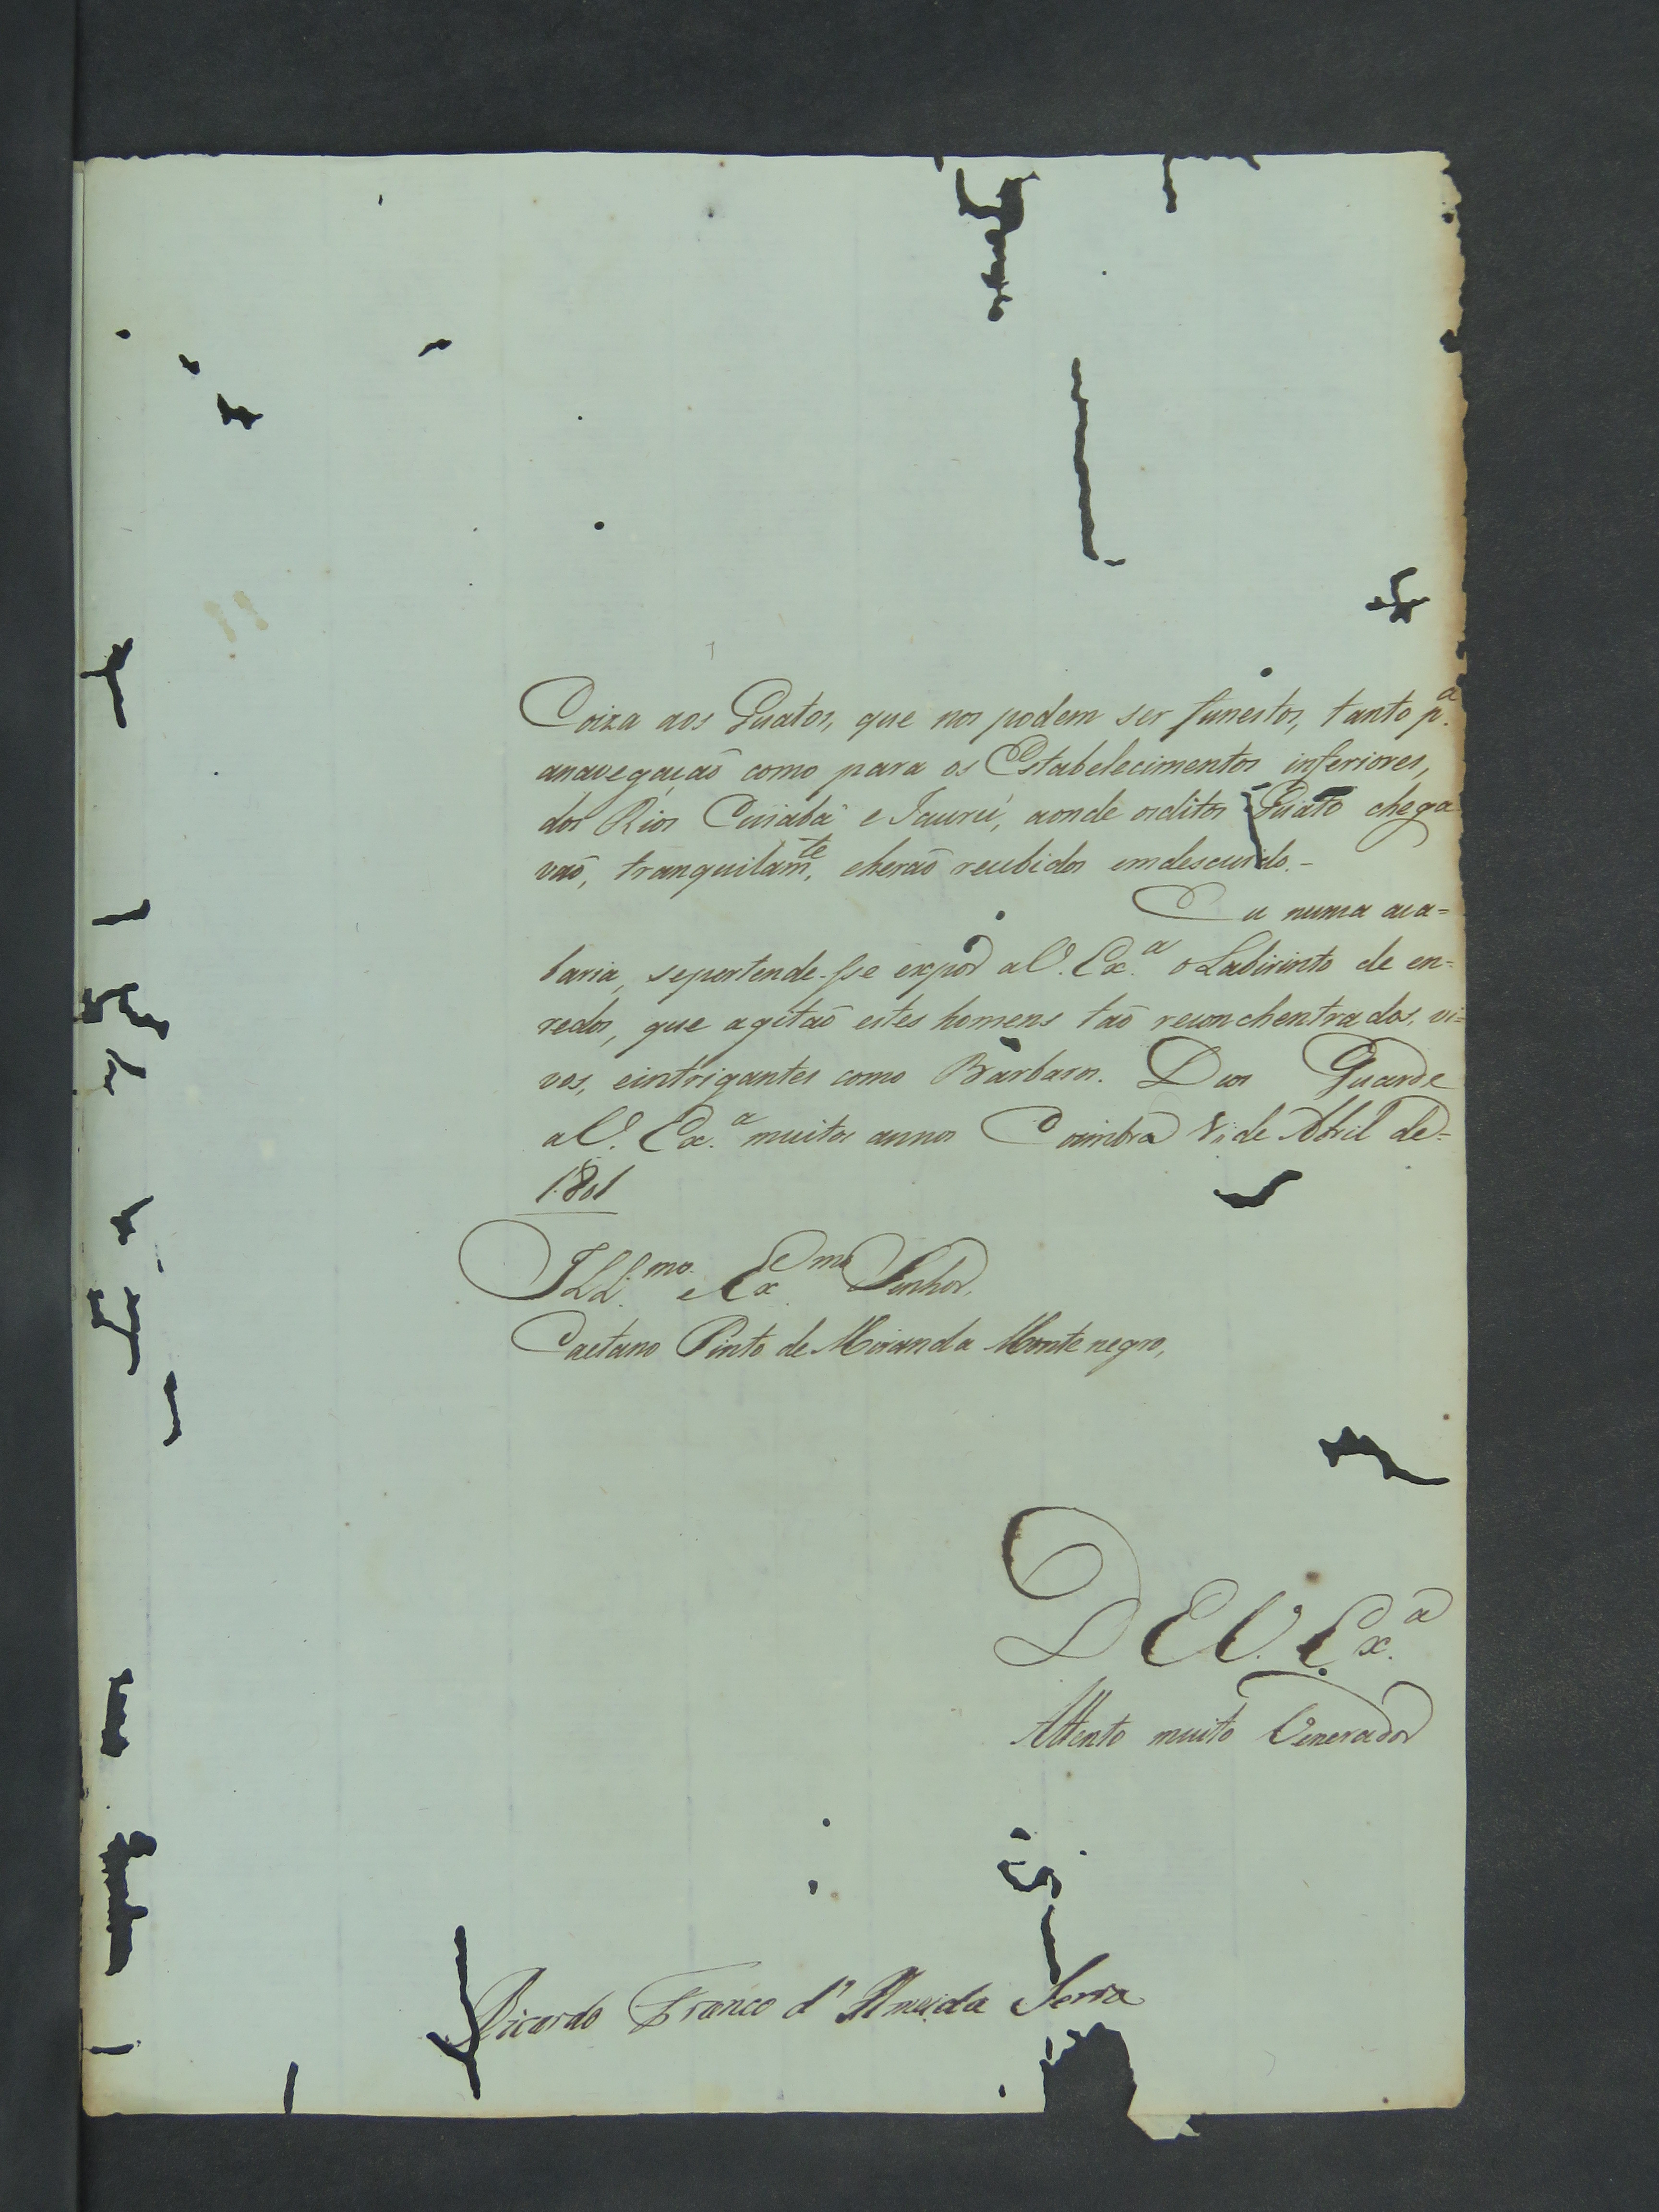 Coiza aos Guatos, que nos podem ser funestos, tanto p.ª
anavegação como para os Estabelecimentos inferiores,
dos Rios Cuiabá e Jaurú, aonde osditos Guato chega
vão, tranquilam.te, eherão recebidos emdescuido.-
Eu nunca aca=
baria, sepertende-sse expor aV. Ex.ª o Labirinto de en=
redos, que agitão estes homens tão reconchentrados, vi=
vos, eintrigantes como Barbaros. Deos Guarde
aV. Ex.ª muitos annos Coimbra de Abril de=
1801
ILL.mo e Ex.mo Senhor,
Caetano Pinto de Miranda Monte negro,
DE V. Ex.ª
Attento muito Venerador
Ricardo Franco d'Almeida Serra